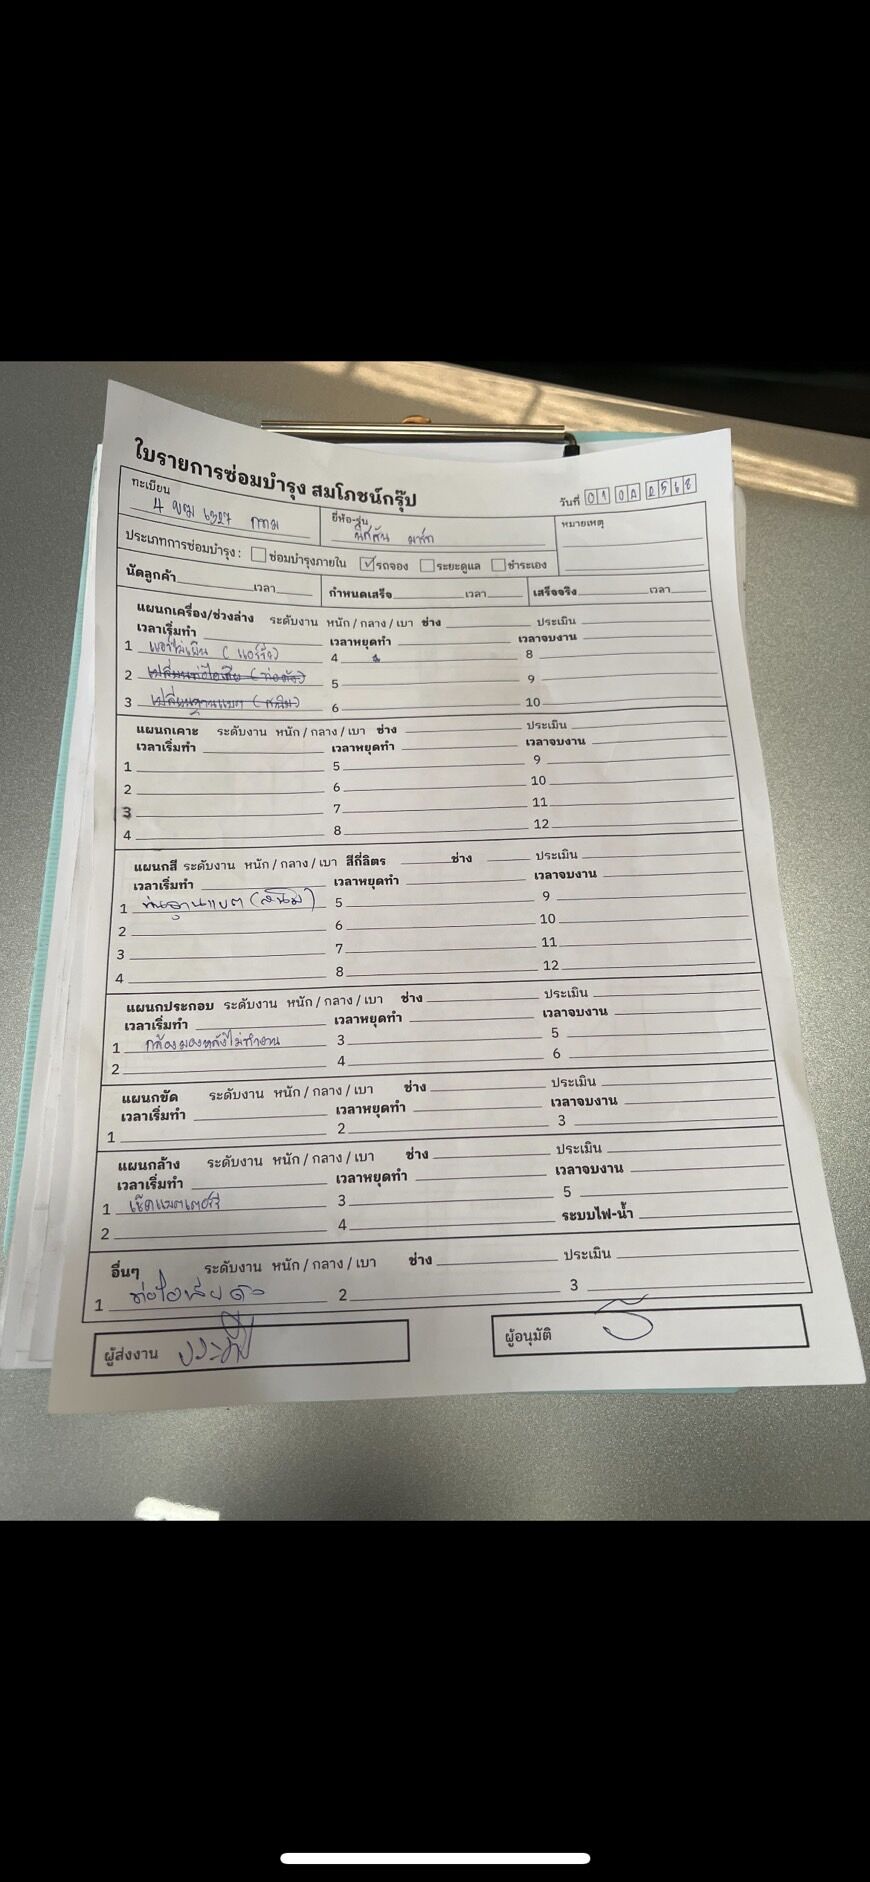 ใบรายการซ่อมบำรุง สมโภชน์กรุ๊ป
วันที่ 01 08 2568
ทะเบียน 4 ขฆ 6327 กทม
ยี่ห้อ-รุ่น นิสสัน มาร์ท
หมายเหตุ
ประเภทการซ่อมบำรุง : ซ่อมบำรุงภายใน รถจอง ระยะดูแล ชำระเอง
นัดลูกค้า เวลา กำหนดเสร็จ เวลา เสร็จจริง เวลา
แผนกเครื่อง/ช่วงล่าง ระดับงาน หนัก / กลาง / เบา ช่าง ประเมิน
เวลาเริ่มทำ เวลาหยุดทำ เวลาจบงาน
1 แอร์ไม่เย็น ( แอร์รั่ว) 4 8
2 เปลี่ยนท่อไอเสีย (ท่อดัง) 5 9
3 เปลี่ยนฐานแบต (สนิม) 6 10
แผนกเคาะ ระดับงาน หนัก / กลาง / เบา ช่าง ประเมิน
เวลาเริ่มทำ เวลาหยุดทำ เวลาจบงาน
1 5 9
2 6 10
3 7 11
4 8 12
แผนกสี ระดับงาน หนัก / กลาง / เบา สีกี่ลิตร ช่าง ประเมิน
เวลาเริ่มทำ เวลาหยุดทำ เวลาจบงาน
1 พ่นฐานแบต (สนิม) 5 9
2 6 10
3 7 11
4 8 12
แผนกประกอบ ระดับงาน หนัก / กลาง / เบา ช่าง ประเมิน
เวลาเริ่มทำ เวลาหยุดทำ เวลาจบงาน
1 กล้องมองหลังไม่ทำงาน 3 5
2 4 6
แผนกขัด ระดับงาน หนัก / กลาง / เบา ช่าง ประเมิน
เวลาเริ่มทำ เวลาหยุดทำ เวลาจบงาน
1 2 3
แผนกล้าง ระดับงาน หนัก / กลาง / เบา ช่าง ประเมิน
เวลาเริ่มทำ เวลาหยุดทำ เวลาจบงาน
1 เช็คแบตเตอร์รี่ 3 5
2 4 ระบบไฟ-น้ำ
อื่นๆ ระดับงาน หนัก / กลาง / เบา ช่าง ประเมิน
1 ท่อไอเสียดัง 2 3
ผู้ส่งงาน ประทีป ผู้อนุมัติ